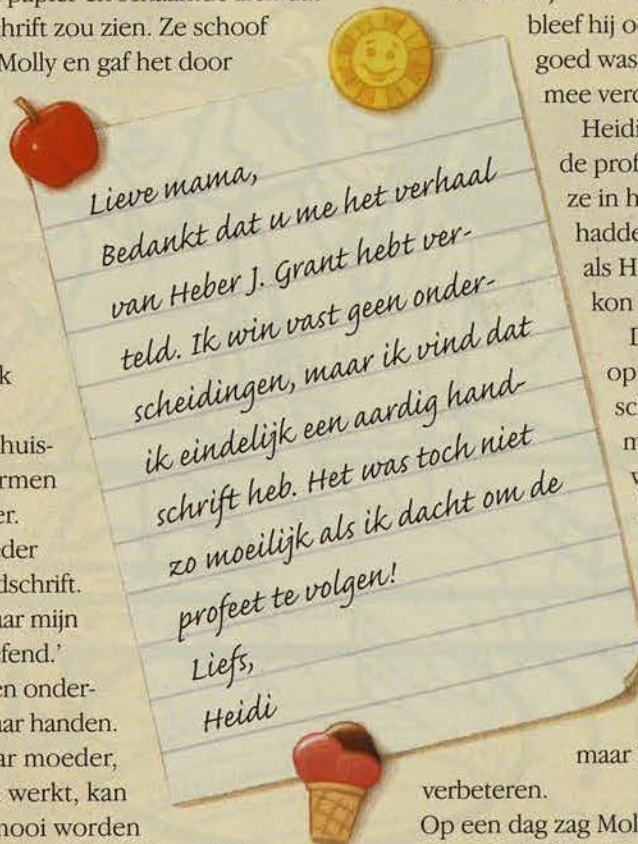 hrift zou zien. Ze schoof
Molly en gaf het door
k
huis-
rmen
er.
eder
dschrift.
ar mijn
fend.'
en onder-
ar handen.
ar moeder,
werkt, kan
nooi worden
Lieve mama,
Bedankt dat u me het verhaal
van Heber J. Grant hebt ver-
teld. Ik win vast geen onder-
scheidingen, maar ik vind dat
ik eindelijk een aardig hand-
schrift heb. Het was toch niet
zo moeilijk als ik dacht om de
profeet te volgen!
Liefs,
Heidi
bleef hij o
goed was
mee verd
Heidi
de prof
ze in h
hadde
als H
kon
D
op
sc
m
maar
verbeteren.
Op een dag zag Mol